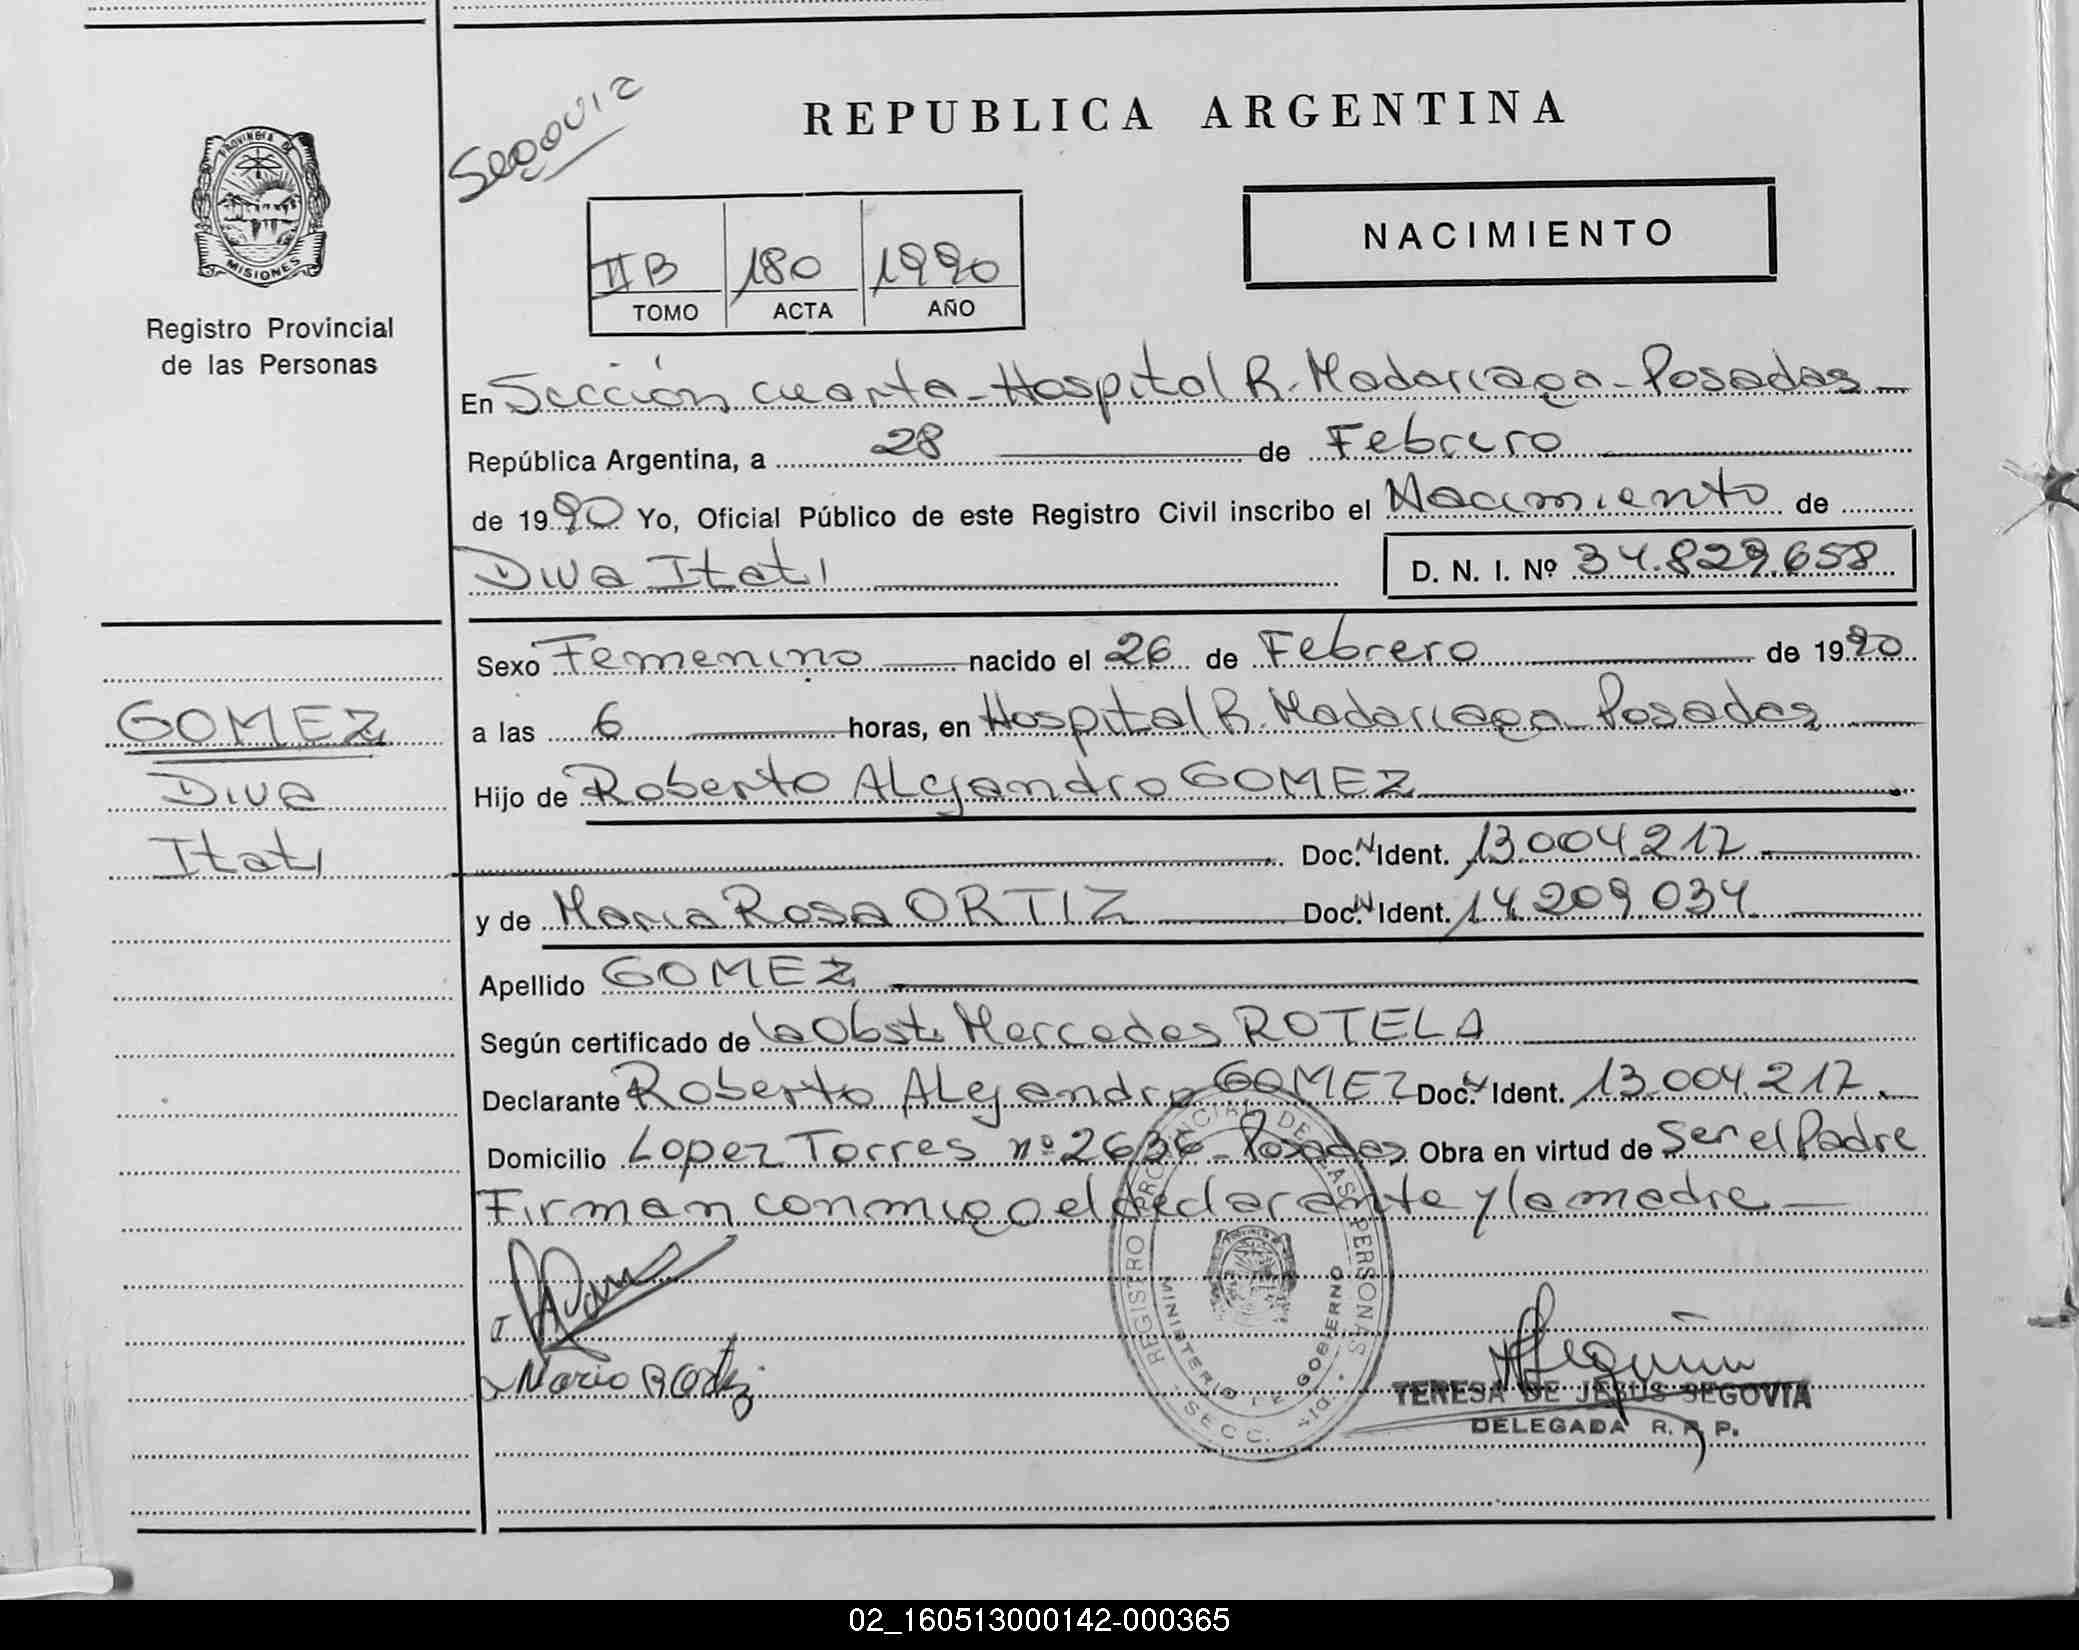 REPUBLICA ARGENTINA
NACIMIENTO
II B 180 1990
TOMO ACTA AÑO
PROVINCIA DE
MISIONES
Registro Provincial
de las Personas
En Sección cuarta - Hospital R. Madariaga - Posadas
República Argentina, a 28 de Febrero
de 1990 Yo, Oficial Público de este Registro Civil inscribo el Nacimiento de
Diva Itatí
D. N. I. Nº 34.829.658
Sexo Femenino nacido el 26 de Febrero de 1990
a las 6 horas, en Hospital R. Madariaga - Posadas
Hijo de Roberto Alejandro GOMEZ
Doc. N Ident. 13.004.217
y de Maria Rosa ORTIZ Doc. N Ident. 14.209.034
Apellido GOMEZ
Según certificado de la Obst. Mercedes ROTELA
Declarante Roberto Alejandro GOMEZ Doc. N Ident. 13.004.217.
Domicilio Lopez Torres nº 2636 - Posadas Obra en virtud de Ser el Padre
Firman conmigo el declarante y la madre
GOMEZ
Diva
Itatí
REGISTRO PROVINCIAL DE LAS PERSONAS
MINISTERIO DE GOBIERNO
SECC. 4ta.
Maria R Ortiz
TERESA DE JESUS SEGOVIA
DELEGADA R. P. P.
02_160513000142-000365